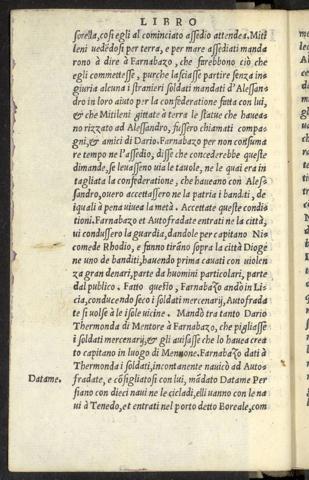 LIBRO
sorella, cosi egli al cominciato assedio attendea. Miti
leni uedẽdosi per terra, e per mare assediati manda
rono à dire à Farnabazo, che farebbono ciò che
egli commettesse, purche lasciasse partire senza in
giuria alcuna i stranieri soldati mandati d'Alessan
dro in loro aiuto per la confederatione fatta con lui,
& che Mitileni gittate à terra le statue che hauea
no rizzato ad Alessandro, fussero chiamati compa
gni, & amici di Dario. Farnabazo per non consuma
re tempo ne l'assedio, disse che concederebbe queste
dimande, se leuasseno uia le tauole, ne le quai era in
tagliata la confederatione, che haueano con Ales
sandro, ouero accettassero ne la patria i banditi, de
i quali à pena uiuea la metà. Accettate queste condi
tioni. Farnabazo et Autofradate entrati ne la città,
ui condussero la guardia, dandole per capitano Ni
comede Rhodio, e fanno tirãno sopra la città Dioge
ne uno de banditi, hauendo prima cauati con uiolen
za gran denari, parte da huomini particolari, parte
dal publico. Fatto questo, Farnabazo andò in Lis
cia, conducendo seco i soldati mercenarij, Autofrada
te si uolse à le isole uicine. Mandò tra tanto Dario
Thermonda di Mentore à Farnabazo, che pigliasse
i soldati mercenarij, & gli auisasse che lo hauea crea
to capitano in luogo di Mennone. Farnabazo dati à
Thermonda i soldati, incontanente nauicò ad Auto
Datame. fradate, e cõsigliatosi con lui, mãdato Datame Per
siano con dieci naui ne le cicladi, elli uanno con le na
ui à Tenedo, et entrati nel porto detto Boreale, com